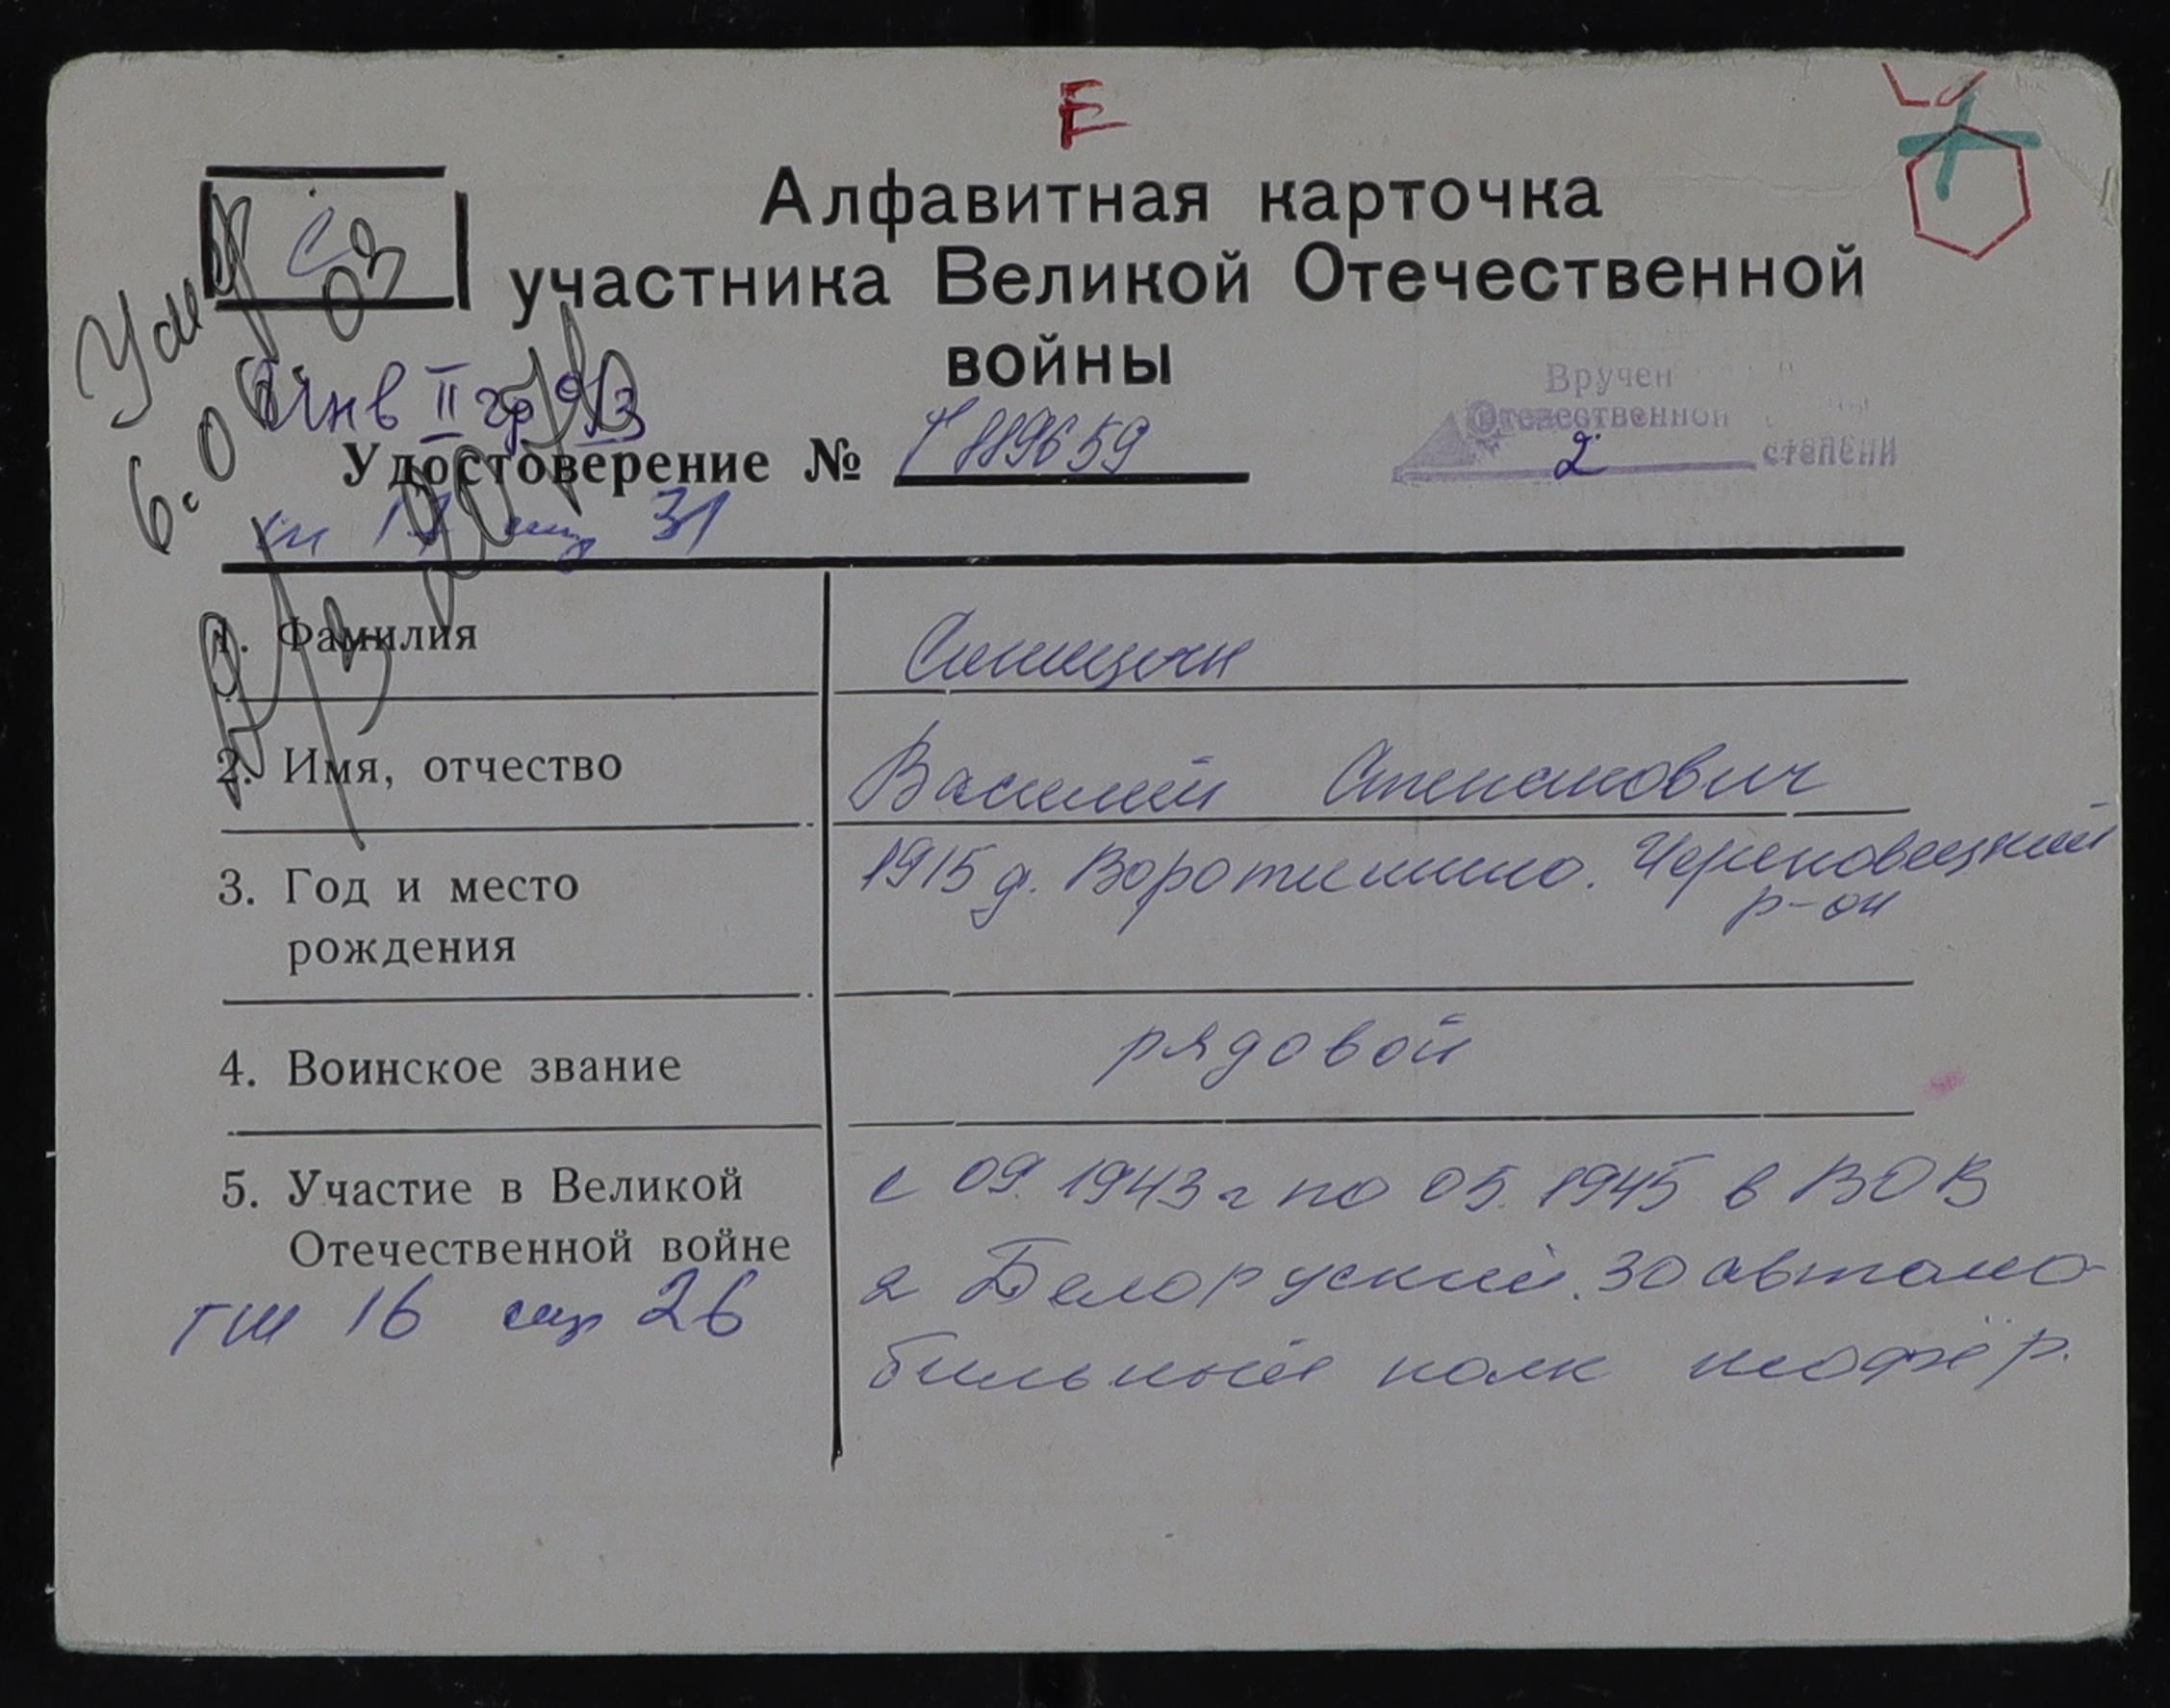 Е
Алфавитная карточка
участника Великой Отечественной
войны
С
03
Умер
6.0
Инв II гр 9/3
Вручен
Отечественной
2 степени
Удостоверение № 889659
17 стр 31
1. Фамилия Синицын
2. Имя, отчество Василий Степанович
3. Год и место 1915 д. Воротишино. Череповецкий
р-он
рождения
4. Воинское звание рядовой
5. Участие в Великой с 09. 1943 г по 05. 1945 в ВОВ
Отечественной войне 2 Белоруский. 30 автомо-
ГШ 16 стр 26 бильный полк шофёр.